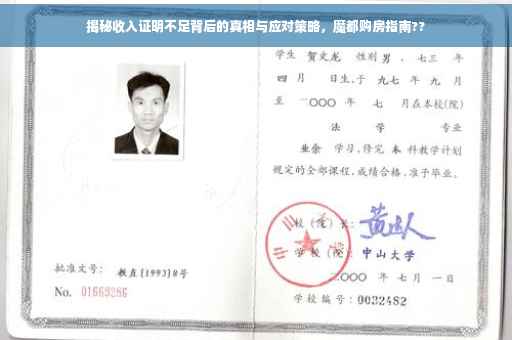 揭秘收入证明不足背后的真相与应对策略，魔都购房指南??
学生 贺文龙 性别 男，七三 年
四 月 日生，于 九七 年 九 月
至 二〇〇〇 年 七 月在本校(院)
法 学 专业
业余 学习，修完 本 科教学计划
规定的全部课程，成绩合格，准予毕业。
校（院）长：
学校（院）：中山大学
二〇〇〇 年 七 月 一 日
批准文号：教直[1993]8号
No. 01669286
学校编号：0032482